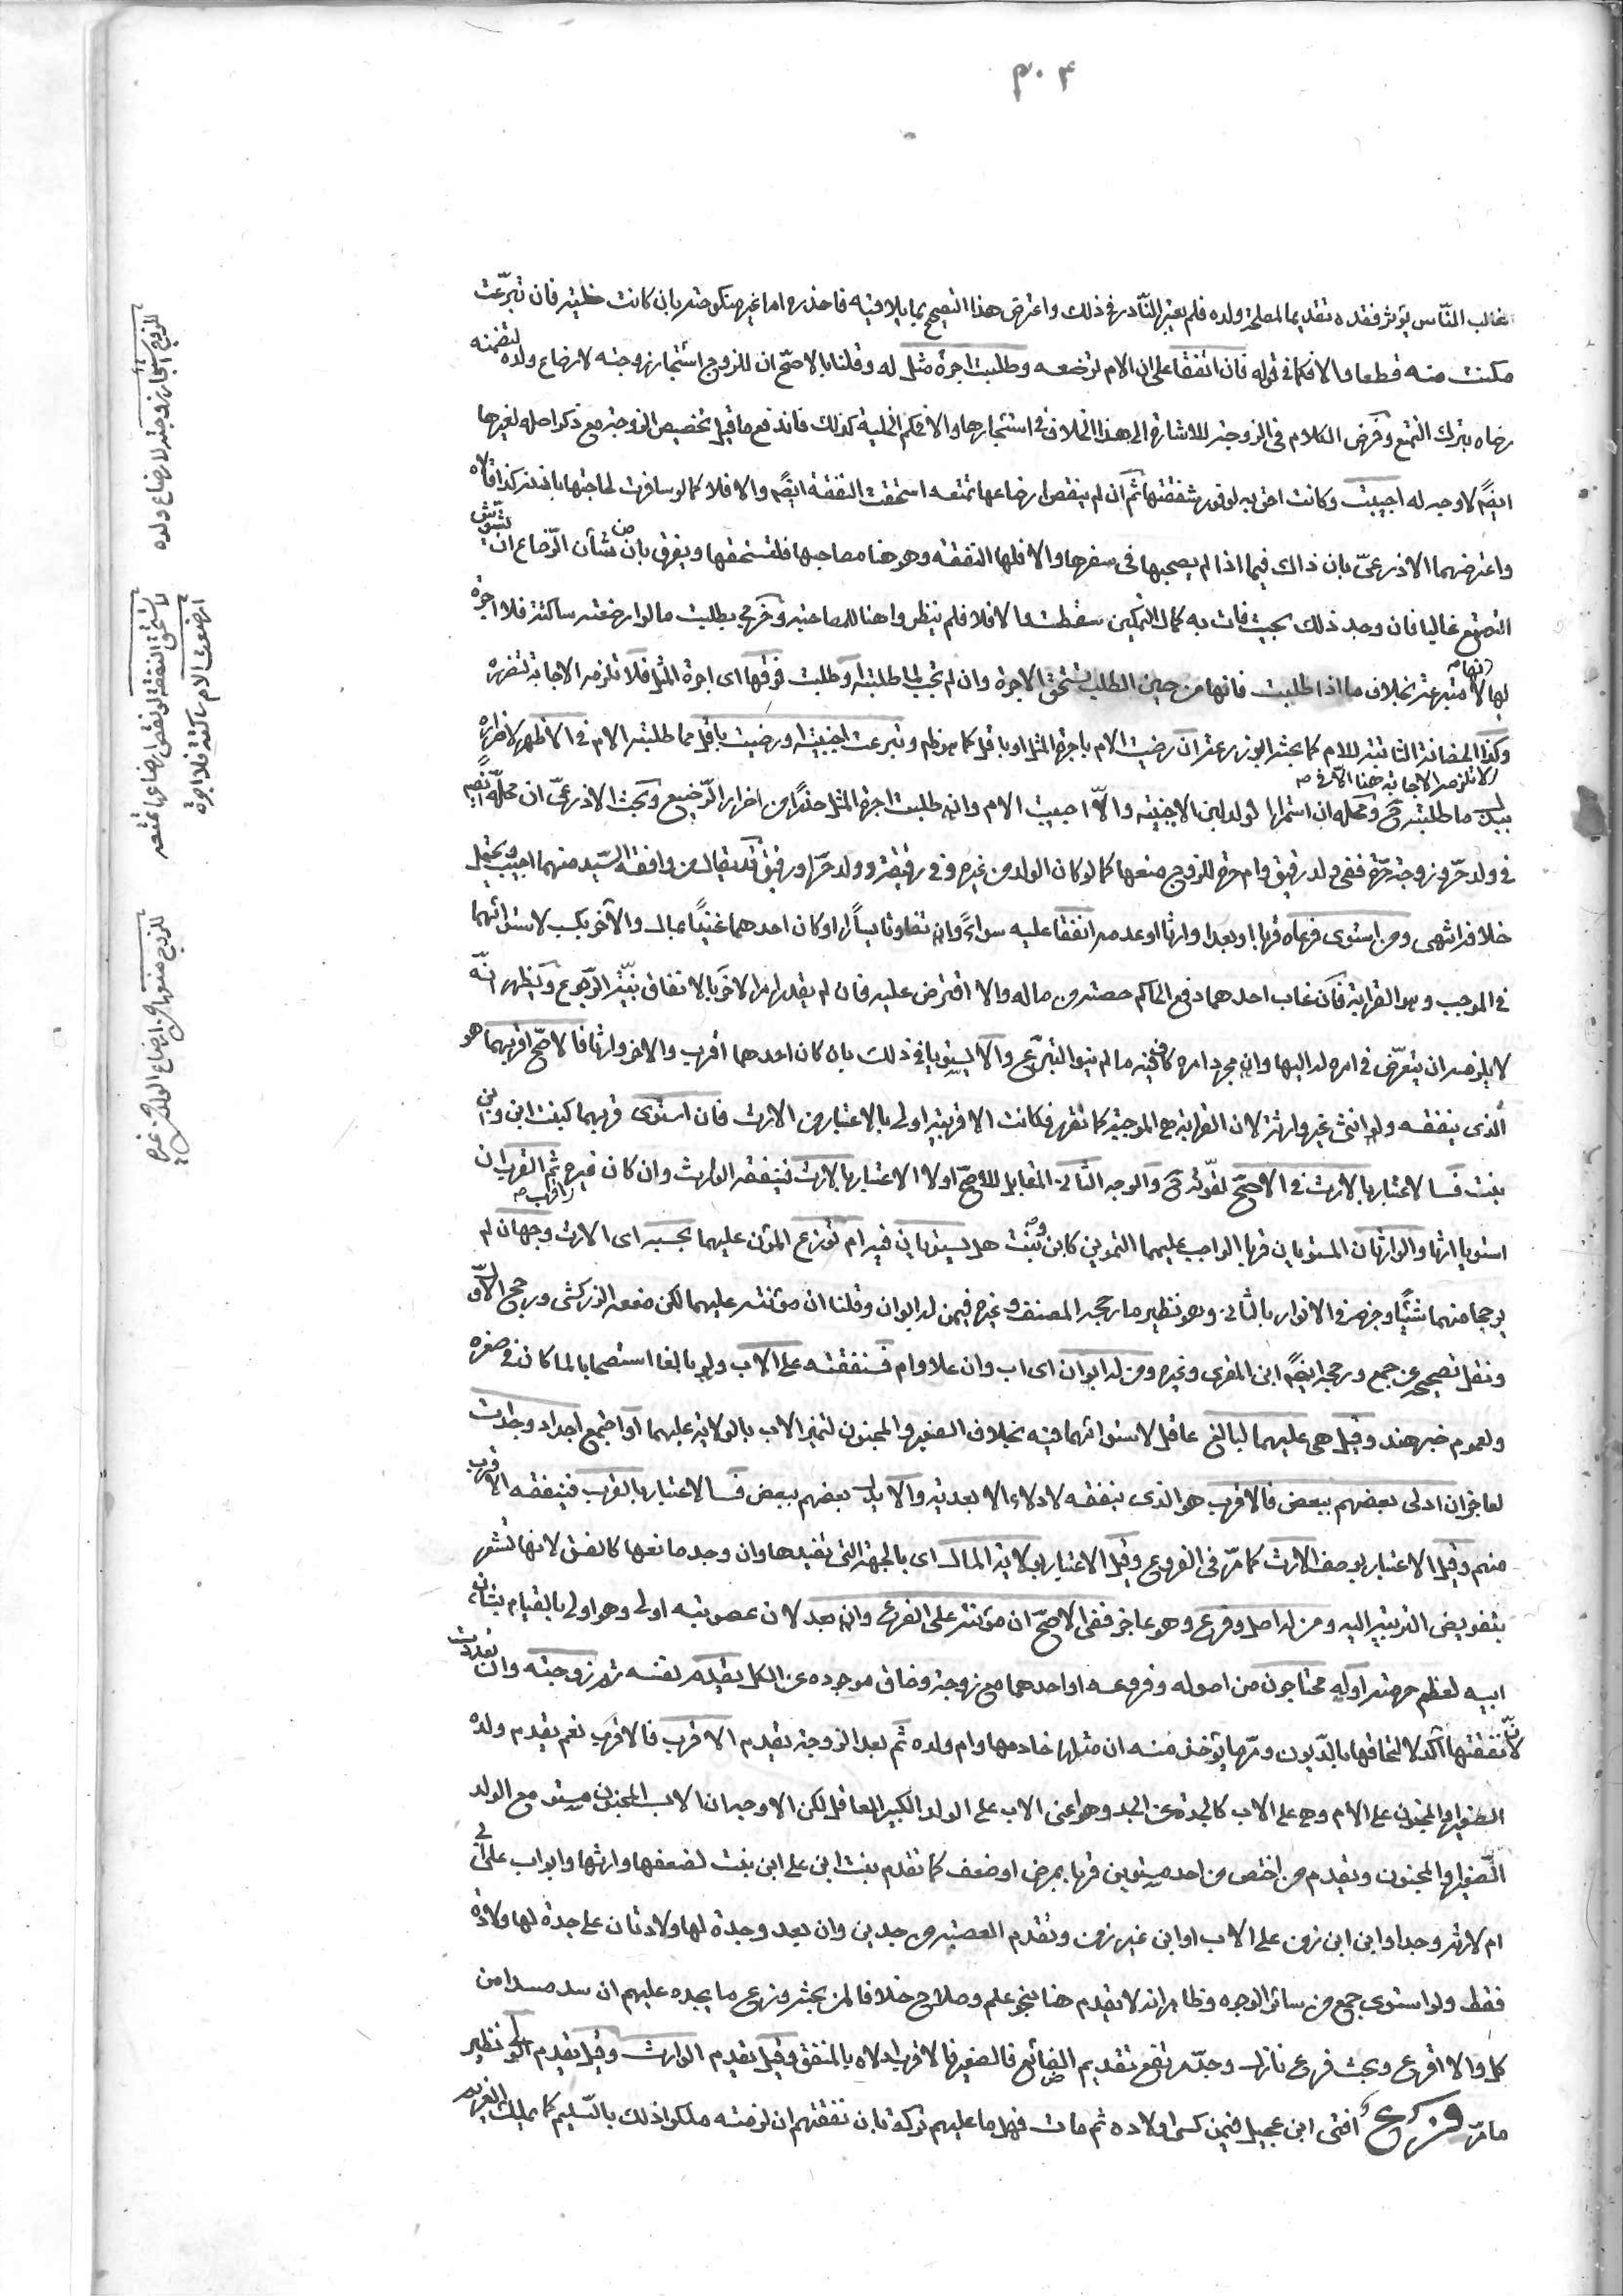 ٣٠٤
غالب الناس يؤثر فقده تقديما لمصلحة ولده فلم يعتبر النادر في ذلك واعترض هذا التصحيح بما يلاقيه فاحذره اما غير منكوحته بان كانت خلية فان تبرعت
مكنت منه قطعا والا فكما في قوله فان اتفقا على ان الام ترضعه وطلبت اجرة مثل له وقلنا بالاصح ان للزوج استئجار زوجته لارضاع ولده لتضمنه
رضاه بترك التمتع وفرض الكلام في الزوجة للاشارة الى هذا الخلاف في استئجارها والا فحكم الخلية كذلك فاندفع ما قيل تخصيص الزوجة مع ذكر اصله لغيرها
ايضا لا وجه له اجيبت وكانت احق به لوفور شفقتها ثم ان لم ينقص ارضاعها تمتعه استحقت النفقة ايضا والا فلا كما لو سافرت لحاجتها باذنه كذا قالاه
واعترضهما الاذرعي بان ذاك فيما اذا لم يصحبها في سفرها والا فلها النفقة وهو هنا مصاحبها فلتستحقها ويفرق بان من شأن الرضاع ان يشوش
التمتع غالبا فان وجد ذلك بحيث فات به كمال التمكين سقطت والا فلا فلم ينظروا هنا للمصاحبة وخرج بطلبت ما لو ارضعته ساكتة فلا اجرة
لها لانها متبرعة بخلاف ما اذا طلبت فانها من حين الطلب تستحق الاجرة وان لم تجب لما طلبته او طلبت فوقها اى اجرة المثل فلا تلزمه الاجابة لتضرره
وكذا الحضانة الثابتة للام كما بحثه ابو زرعة ان رضيت الام باجرة المثل او باقل كما هو ظم وتبرعت اجنبية او رضيت باقل مما طلبته الام في الاظهر لاضراره
اى لا تلزمه الاجابة هنا
ببذل ما طلبته ح ومحله ان استمرأ الولد لبن الاجنبية والا اجيبت الام وان طلبت اجرة المثل حذرا من اضرار الرضيع وبحث الاذرعي ان محله ايضا
في ولد حر وزوجة حرة ففي ولد رقيق وام حرة للزوج منعها كما لو كان الولد من غيره وفي رقيقة وولد حر او رقيق قد يقال من وافقه السيد منهما اجيب ويحتمل
خلافه انتهى ومن استوى فرعاه قربا او بعدا وارثا او عدمه انفقا عليه سواء وان تفاوتا يسارا او كان احدهما غنيا بمال والآخر بكسب لاستوائهما
في الموجب وهو القرابة فان غاب احدهما دفع الحاكم حصته من ماله والا اقترض عليه فان لم يقدر امر الآخر بالانفاق بنية الرجوع ويظهر انه
لا يلزمه ان يتعرض في امره له اليها وان مجرد امره كاف فيه ما لم ينو التبرع والا يستويا في ذلك بان كان احدهما اقرب والآخر وارثا فالاصح اقربهما هو
الذى ينفقه ولو انثى غير وارثة لان القرابة هي الموجبة كما تقرر فكانت الاقربية اولى بالاعتبار من الارث فان استوى قربهما كبنت ابن وابن
بنت فـالاعتبار بالارث في الاصح لقوته ح والوجه الثاني المقابل للاصح اولا الاعتبار بالارث فينفقه الوارث وان كان غيره اقرب ثم القرب ان
استويا ارثا والوارثان المستويان قربا الواجب عليهما التموين كابن وبنت هل يستويان فيه ام توزع المؤن عليهما بحسبه اى الارث وجهان لم
يرجحا منهما شيئا وجزم في الانوار بالثاني وهو نظير ما رجحه المصنف وغيره فيمن له ابوان وقلنا ان مؤنته عليهما لكن منعه الزركشى ورجح الاول
ونقل تصحيحه عن جمع ورجحه ايضا ابن المقرى وغيره ومن له ابوان اى اب وان علا وام فـنفقته على الاب ولو بالغا استصحابا لما كان في صغره
ولعموم خبر هند وقيل هي عليهما لبالغ عاقل لاستوائهما فيه بخلاف الصغير والمجنون لتميز الاب بالولاية عليهما او اجتمع اجداد وجدات
لعاجز ان ادلى بعضهم ببعض فالاقرب هو الذى ينفقه لادلاء الابعد به والا يدل بعضهم ببعض فـالاعتبار بالقرب فينفقه الاقرب
منهم وقيل الاعتبار بوصف الارث كما مر في الفروع وقيل الاعتبار بولاية المال اى بالجهة التى تفيدها وان وجد مانعها كالفسق لانها تشعر
بتفويض التربية اليه ومن له اصل وفرع وهو عاجز ففي الاصح ان مؤنته على الفرع وان بعد لان عصوبته اولى وهو اولى بالقيام بشأن
ابيه لعظم حرمته او له محتاجون من اصوله وفروعه او احدهما مع زوجة وضاق موجوده عن الكل يقدم نفسه ثم زوجته وان تعددت
لان نفقتها آكد لالتحاقها بالديون ومر ما يؤخذ منه ان مثلها خادمها وام ولده ثم بعد الزوجة يقدم الاقرب فالاقرب نعم يقدم ولده
الصغير او المجنون على الام وهي على الاب كالجدة على الجد وهو اعنى الاب على الولد الكبير العاقل لكن الاوجه ان الاب المجنون مستو مع الولد
الصغير او المجنون ويقدم من اختص من احد مستويين قربا بمرض او ضعف كما تقدم بنت ابن على ابن بنت لضعفها وارثها وابو اب على ابى
ام لارثه وجد او ابن ابن زمن على الاب او ابن غير زمن وتقدم العصبة من جدين وان بعد وجدة لها ولادتان على جدة لها ولادة
فقط ولو استوى جمع من سائر الوجوه وظاهر انه لا يقدم هنا بنحو علم وصلاح خلافا لمن بحثه وزع ما يجده عليهم ان سد مسدا من
كل والا اقرع وبحث فرع نازل وجد يقع تقديم الضائع فالصغير فالاقرب ادلاء بالمنفق وقيل يقدم الوارث وقيل يقدم الولي نظير
ما مر فرع افتى ابن عجيل فيمن كسى اولاده ثم مات فهل ما عليهم تركة بان نفقتهم ان لزمته ملكوا ذلك بالتسليم كما يملك الغريم
للزوج استئجار زوجته لارضاع ولده
لا تستحق النفقة لو نقص ارضاعها تمتعه
ارضعت الام ساكتة فلا اجرة
للزوج منعها من ارضاع الولد من غيره